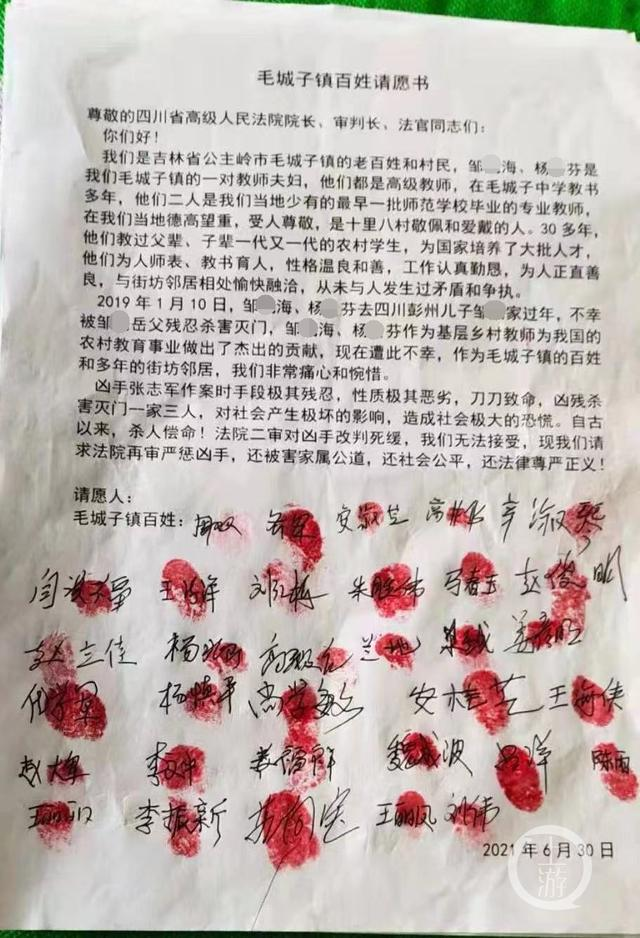 毛城子镇百姓请愿书
尊敬的四川省高级人民法院院长、审判长、法官同志们：
你们好！
我们是吉林省公主岭市毛城子镇的老百姓和村民，邹 海、杨 芬是
我们毛城子镇的一对教师夫妇，他们都是高级教师，在毛城子中学教书
多年，他们二人是我们当地少有的最早一批师范学校毕业的专业教师，
在我们当地德高望重，受人尊敬，是十里八村敬佩和爱戴的人。30 多年，
他们教过父辈、子辈一代又一代的农村学生，为国家培养了大批人才，
他们为人师表、教书育人，性格温良和善，工作认真勤恳，为人正直善
良，与街坊邻居相处愉快融洽，从未与人发生过矛盾和争执。
2019 年 1 月 10 日，邹 海、杨 芬去四川彭州儿子邹 家过年，不幸
被邹 岳父残忍杀害灭门，邹 海、杨 芬作为基层乡村教师为我国的
农村教育事业做出了杰出的贡献，现在遭此不幸，作为毛城子镇的百姓
和多年的街坊邻居，我们非常痛心和惋惜。
凶手张志军作案时手段极其残忍，性质极其恶劣，刀刀致命，凶残杀
害灭门一家三人，对社会产生极坏的影响，造成社会极大的恐慌。自古
以来，杀人偿命！法院二审对凶手改判死缓，我们无法接受，现我们请
求法院再审严惩凶手，还被害家属公道，还社会公平，还法律尊严正义！
请愿人：
毛城子镇百姓：
王海侠
魏 波 陈雨
李振新 王丽凤 刘伟
2021 年 6 月 30 日
上游